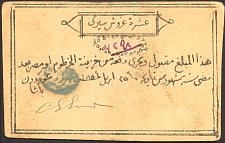 عشرة غروش ميري
٧٢٩٨
هذا المبلغ مقبول ويجري دفعه من خزينة الخرطوم او مصر بعد
مضي ستة شهور من تاريخه ٢٥ ابريل ١٨٨٤
غوردون
باشا